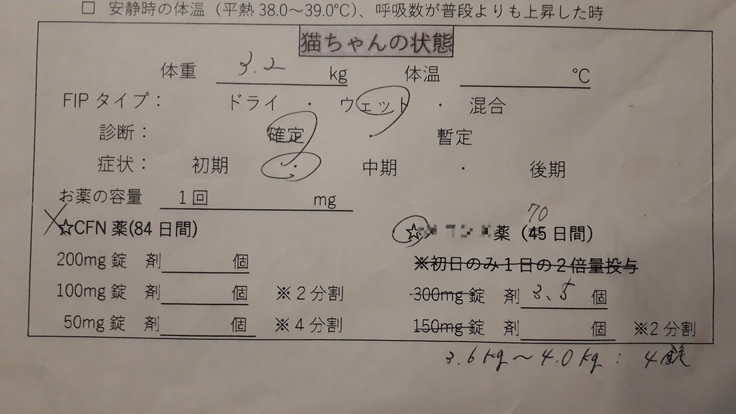 □ 安静時の体温（平熱 38.0～39.0℃）、呼吸数が普段よりも上昇した時
猫ちゃんの状態
体重 3.2 kg 体温 ℃
FIP タイプ： ドライ ・ ウェット ・ 混合
診断： 確定 ・ 暫定
症状： 初期 ・ 中期 ・ 後期
お薬の容量 1回 mg
☆CFN 薬(84 日間)
200mg 錠 剤 個
100mg 錠 剤 個 ※２分割
50mg 錠 剤 個 ※４分割
70
☆ 薬（45 日間）
※初日のみ１日の２倍量投与
300mg 錠 剤 3.5 個
150mg 錠 剤 個 ※2 分割
3.6kg～4.0kg： 4錠